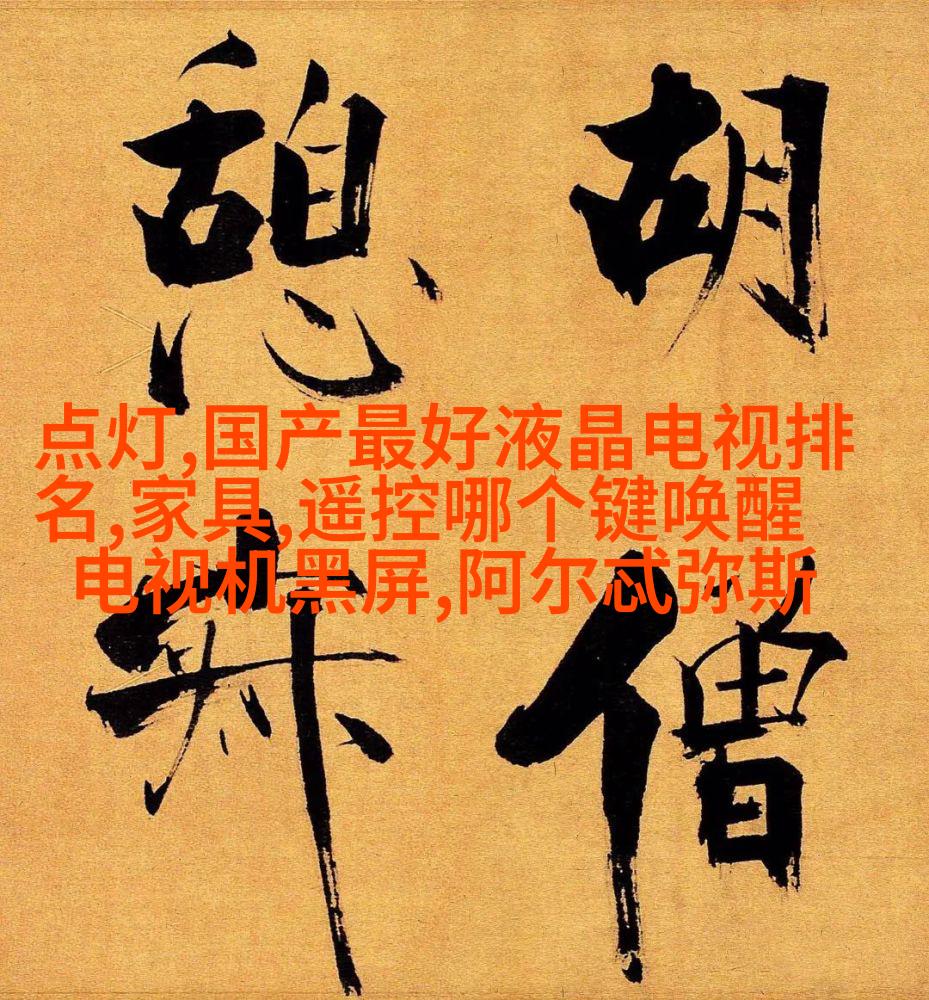 胡僧
憩
点灯,国产最好液晶电视排
名,家具,遥控哪个键唤醒
电视机黑屏,阿尔忒弥斯